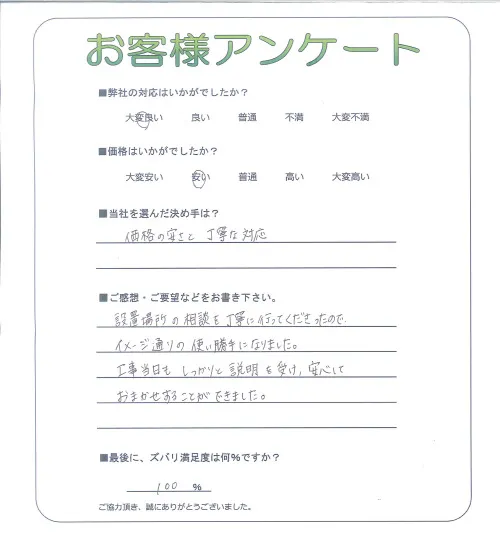 お客様アンケート
■弊社の対応はいかがでしたか？
大変良い 良い 普通 不満 大変不満
■価格はいかがでしたか？
大変安い 安い 普通 高い 大変高い
■当社を選んだ決め手は？
価格の安さと 丁寧な対応
■ご感想・ご要望などをお書き下さい。
設置場所の相談を丁寧に行ってくださったので、
イメージ通りの使い勝手になりました。
工事当日も しっかりと説明を受け、安心して
おまかせすることができました。
■最後に、ズバリ満足度は何%ですか？
100 %
ご協力頂き、誠にありがとうございました。